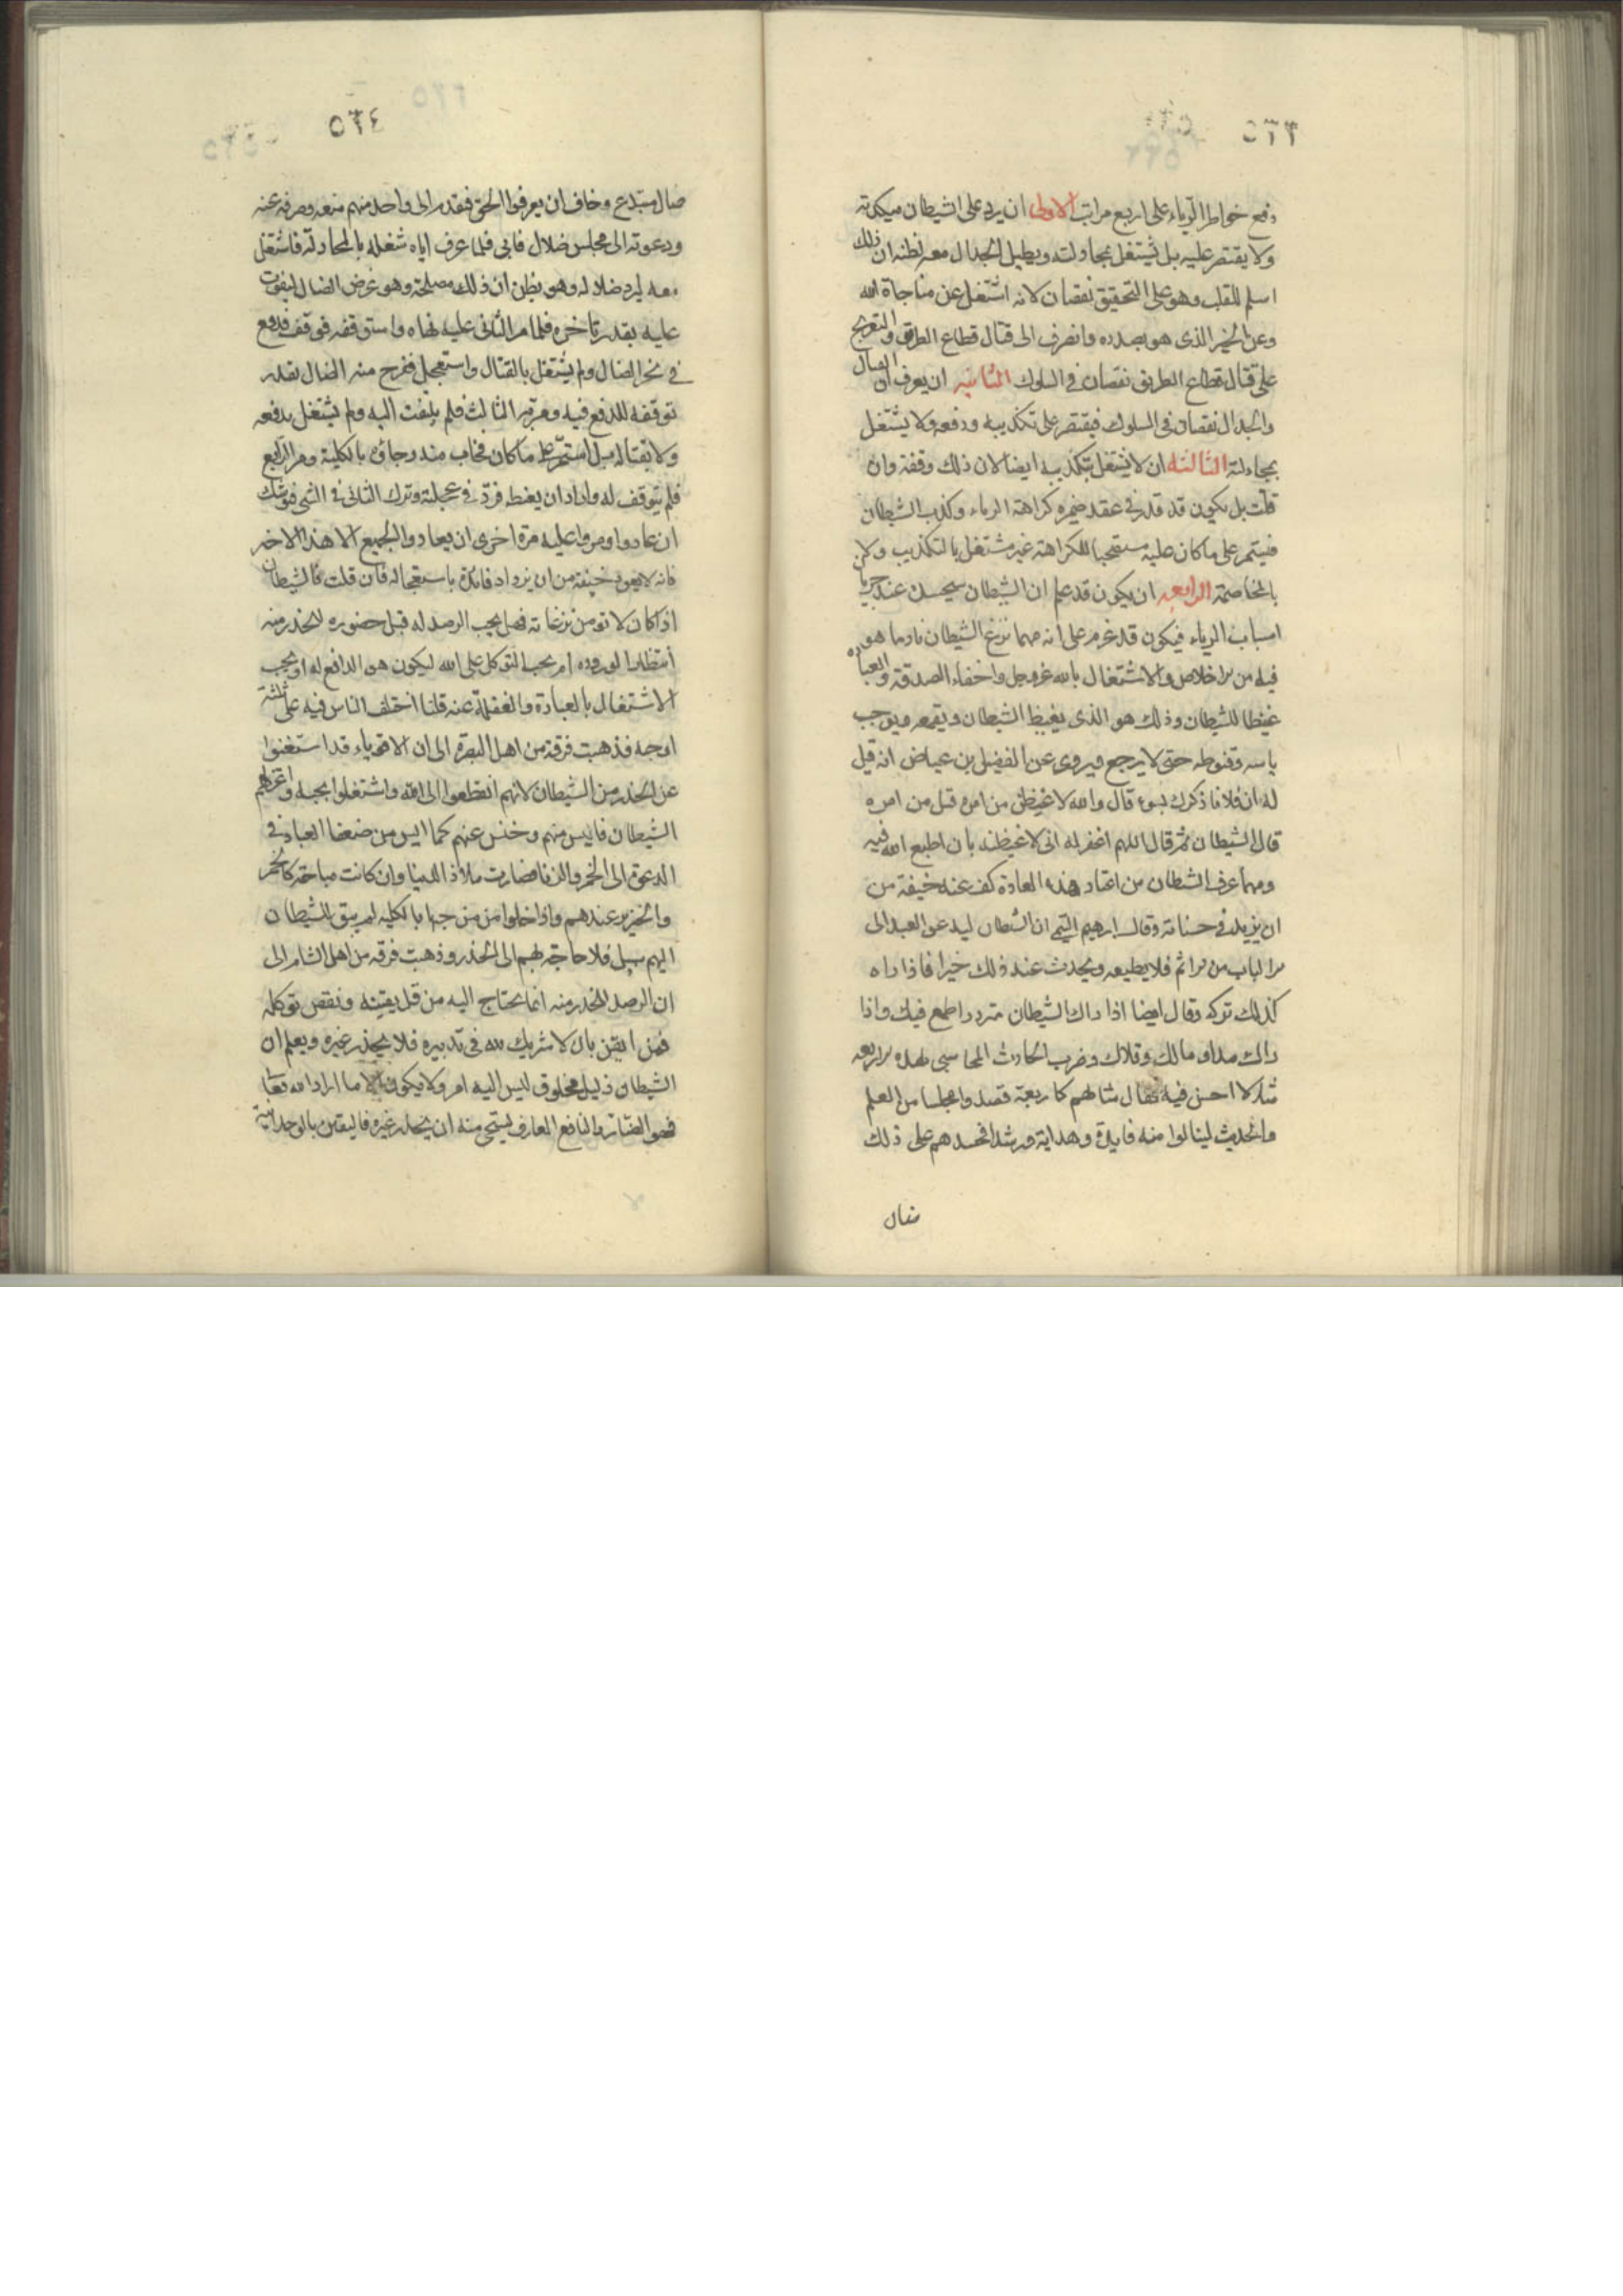 ٥٣٣
دفع خواطر الرياء على اربع مراتب الاولى ان يرد على الشيطان فيكذبه
ولا يقتصر عليه بل يشتغل بمجادلته ويطيل الجدال معه لظنه ان ذلك
اسلم للقلب وهو على التحقيق نقصان لانه اشتغل عن مناجاة الله
وعن الخير الذى هو بصدده وانصرف الى قتال قطاع الطريق والتعريج
على قتال قطاع الطريق نقصان فى السلوك الثانيه ان يعرف ان القتال
والجدال نقصان فى السلوك فيقتصر على تكذيبه ودفعه ولا يشتغل
بمجادلته الثالثه ان لا يشتغل بتكذيبه ايضا لان ذلك وقفة وان
قلت بل يكون قد قدر فى عقد ضميره كراهة الرياء وكذب الشيطان
فيستمر على ما كان عليه مستصحبا للكراهة غير مشتغل بالتكذيب ولا
بالمخاصمة الرابعه ان يكون قد علم ان الشيطان سيحسده عند جريان
اسباب الرياء فيكون قد عزم على انه مهما نزغ الشيطان زاد ما هو
فيه من الاخلاص والاشتغال بالله عز وجل واخفاء الصدقة والعباده
غيظا للشيطان وذلك هو الذى يغيظ الشيطان ويقمعه ويوجب
ياسه وقنوطه حتى لا يرجع ويروى عن الفضيل بن عياض انه قيل
له ان فلانا ذكرك بسوء قال والله لاغيظن من امره قيل من امره
قال الشيطان ثم قال اللهم اغفر له انى لاغيظنه بان اطيع الله فيه
ومهما عرف الشيطان من اعتاد هذه العادة كف عنه خيفة من
ان يزيد فى حسناته وقال ابرهيم التيمى ان الشيطان ليدعو العبد الى
الباب من الاثم فلا يطيعه ويحدث عند ذلك خيرا فاذا راه
كذلك تركه وقال ايضا اذا راك الشيطان مترددا طمع فيك واذا
راك مداوما ملك وقلاك وضرب الحارث المحاسبى لهذه الاربعه
مثالا احسن فيه فقال مثالهم كاربعة قصدوا مجلسا من العلم
والحديث لينالوا منه فايدة وهداية ورشدا فحسدهم على ذلك
ضال
٥٣٤
ضال مبتدع وخاف ان يعرفوا الحق فتقدم الى واحد منهم فمنعه وصرفه عنه
ودعوته الى مجلس ضلال فابى فلما عرف اباه شغله بالمجادلة فاشتغل
معه ليرد ضلاله وهو يظن ان ذلك مصلحة وهو غرض الضال ليفوت
عليه بقدر تاخره فلما مر الثانى عليه نهاه واستوقفه فوقف فدفع
فى نحر الضال ولم يشتغل بالقتال واستعجل ففرح منه الضال بقدر
توقفه للدفع فيه ومر به الثالث فلم يلتفت اليه ولم يشتغل بدفعه
ولا بقتاله بل استمر على ما كان فخاب منه رجاؤه بالكلية ومر الرابع
فلم يتوقف له واراد ان يغيظه فزد فى عجلته وترك التانى فى المشى فيوشك
ان عادوا ومروا عليه مرة اخرى ان يعاود الجميع الا هذا الاخير
فانه لا يعوده خيفة من ان يزداد فائدة باستعجاله فان قلت فالشيطان
اذا كان لا تومن نزغاته فهل يجب الرصد له قبل حضوره للحذر منه
انتظارا لوروده ام يجب التوكل على الله ليكون هو الدافع له او يجب
الاشتغال بالعبادة والغفلة عنه قلنا اختلف الناس فيه على ثلثة
اوجه فذهبت فرقة من اهل البصرة الى ان الاقوياء قد استغنوا
عن الحذر من الشيطان لانهم انقطعوا الى الله واشتغلوا بحبه واعتزلهم
الشيطان فايس منهم وخنس عنهم كما ايس من ضعفا العباد فى
الدعوة الى الخمر والزنا فصارت ملاذ الدنيا وان كانت مباحة كالخمر
والخنزير عندهم واذا خلوا من حبها بالكليه لم يبق للشيطان
اليهم سبيل فلا حاجة بهم الى الحذر وذهبت فرقه من اهل الشام الى
ان الرصد للحذر منه انما يحتاج اليه من قل يقينه ونقص توكله
فمن ايقن بان لا شريك لله فى تدبيره فلا يحذر غيره ويعلم ان
الشيطان ذليل مخلوق ليس اليه امر ولا يكون الا ما اراد الله تعا
فهو الضار والنافع العارف يستحى منه ان يحذر غيره فاليقين بالوحدانية